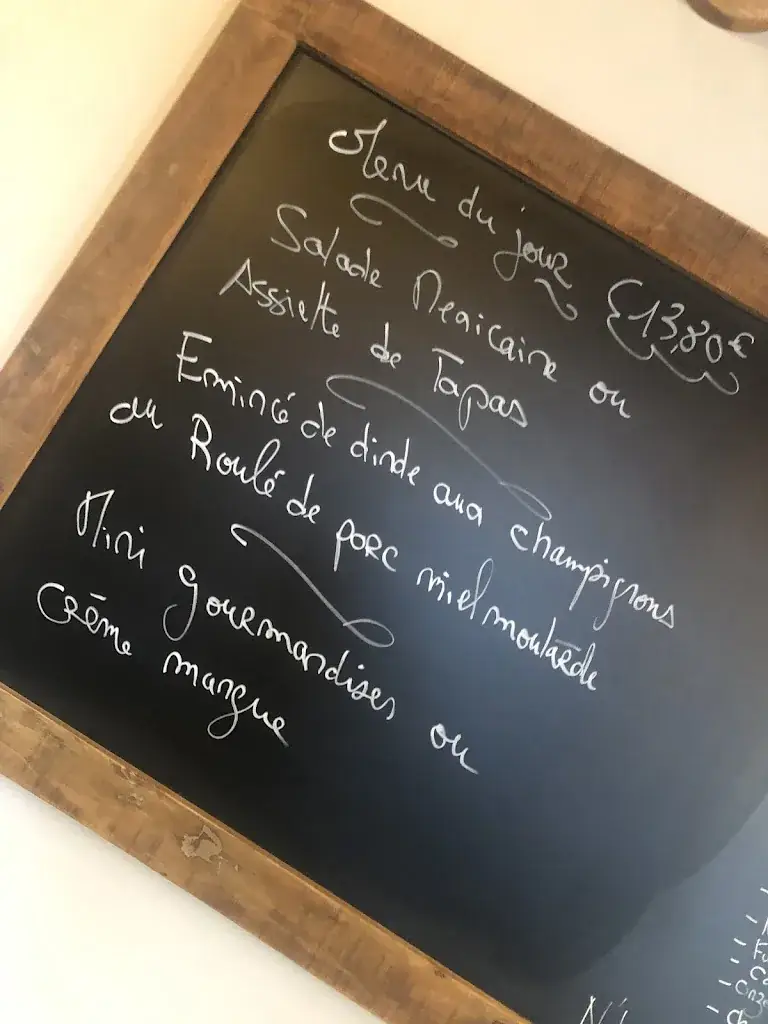 Menu du jour 13,80€
Salade Mexicaine ou
Assiette de Tapas
Emincé de dinde aux champignons
ou Roulé de porc miel moutarde
Mini gourmandises ou
Crème mangue